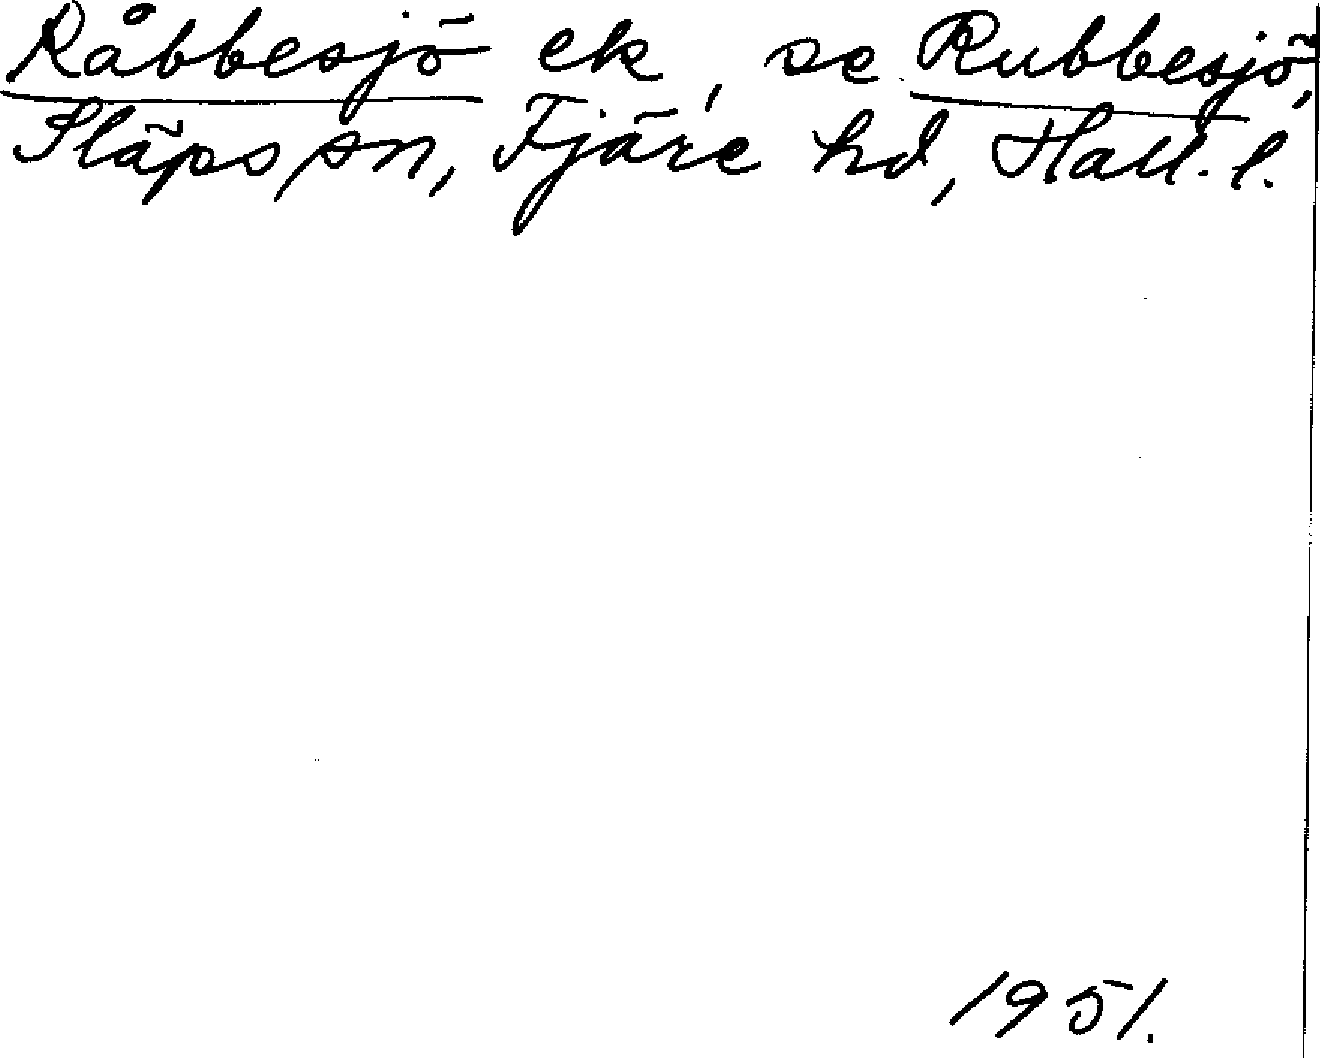 Råbbesjö ek, se Rubbesjö,
Släps sn, Fjäre hd, Hall. l.
1951.